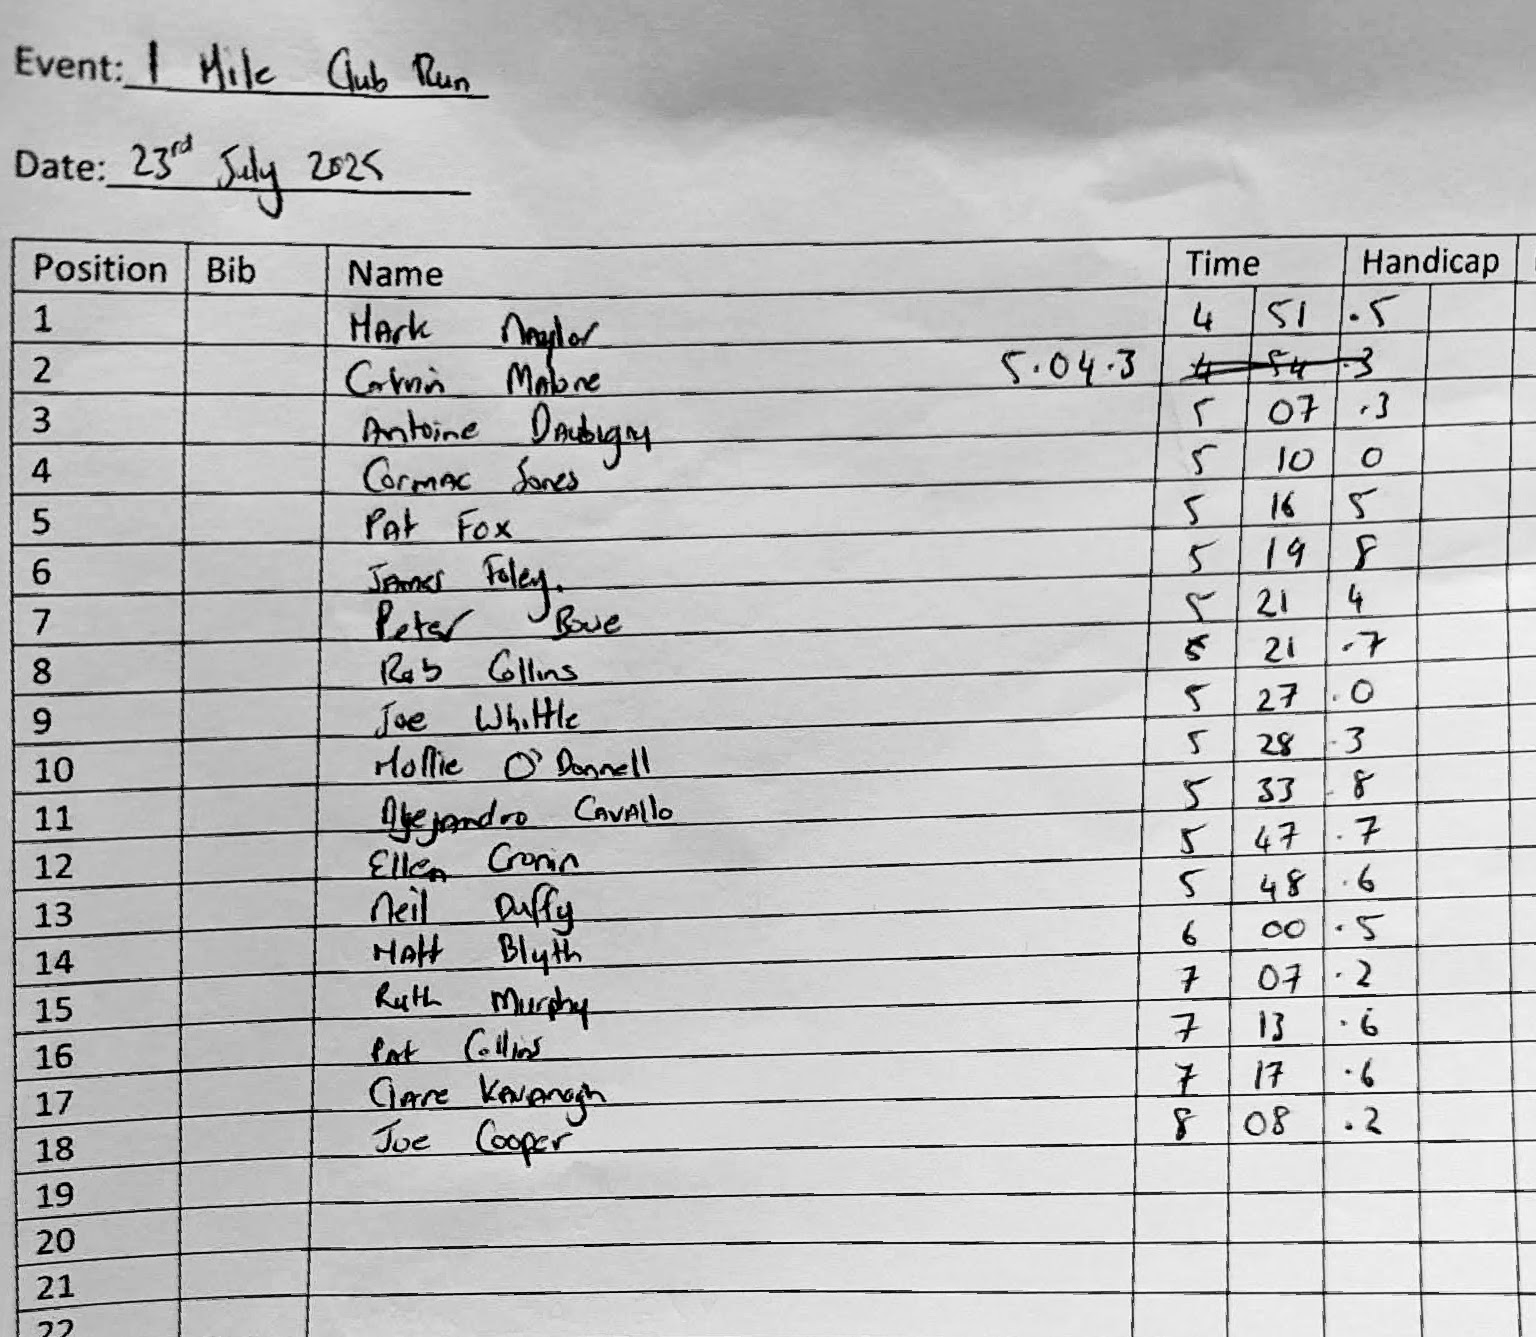 Event: 1 Mile Club Run
Date: 23rd July 2025
Position Bib Name Time Handicap
1 Mark Naylor 4 51 .5
2 Catriin Malone 5.04.3 4 54 .3
3 Antoine Daubigny 5 07 .3
4 Cormac Jones 5 10 0
5 Pat Fox 5 16 5
6 James Foley. 5 19 8
7 Peter Bowe 5 21 4
8 Rab Collins 5 21 .7
9 Joe Whittle 5 27 .0
10 Mollie O'Donnell 5 28 .3
11 Alejandro Cavallo 5 33 .8
12 Ellen Cronin 5 47 .7
13 Neil Duffy 5 48 .6
14 Matt Blyth 6 00 .5
15 Ruth Murphy 7 07 .2
16 Pat Collins 7 13 .6
17 Clare Kavanagh 7 17 .6
18 Joe Cooper 8 08 .2
19
20
21
22